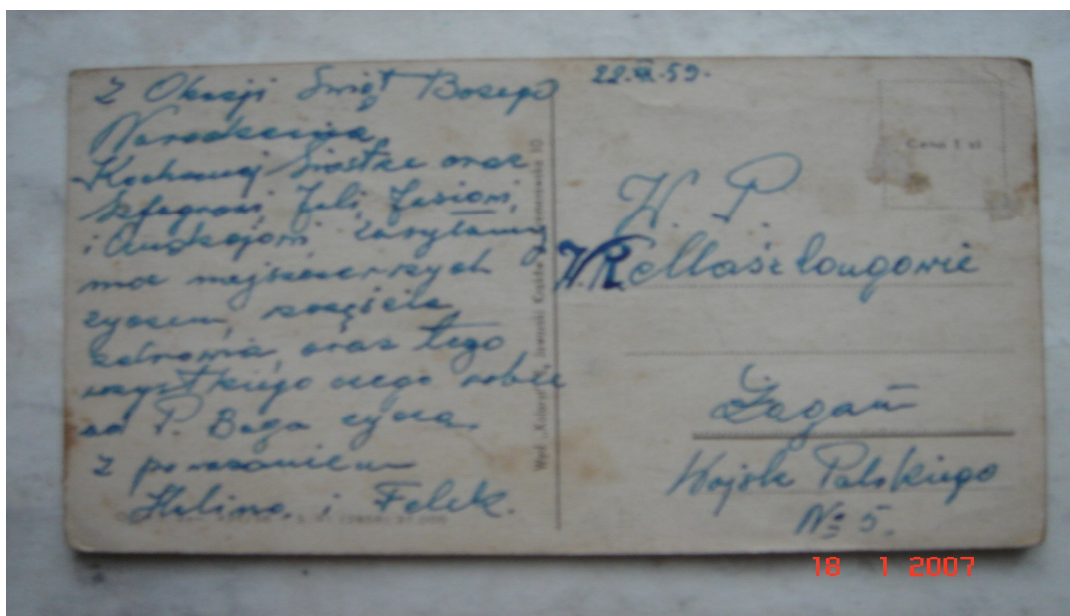 Z Okazji Świąt Bożego
Narodzenia
Kochanej Siostrze oraz
Szfagrowi, Jasiowi,
i Andrzejowi zasyłamy
moc najszczerszych
życzeń, szczęścia
zdrowia, oraz tego
wszystkiego czego sobie
od P. Boga życzą.
z poważaniem
Halina i Felek.
22.XII.59.
Cena 1 zł
W. P.
Żagań
Wojska Polskiego
№ 5.
18 1 2007